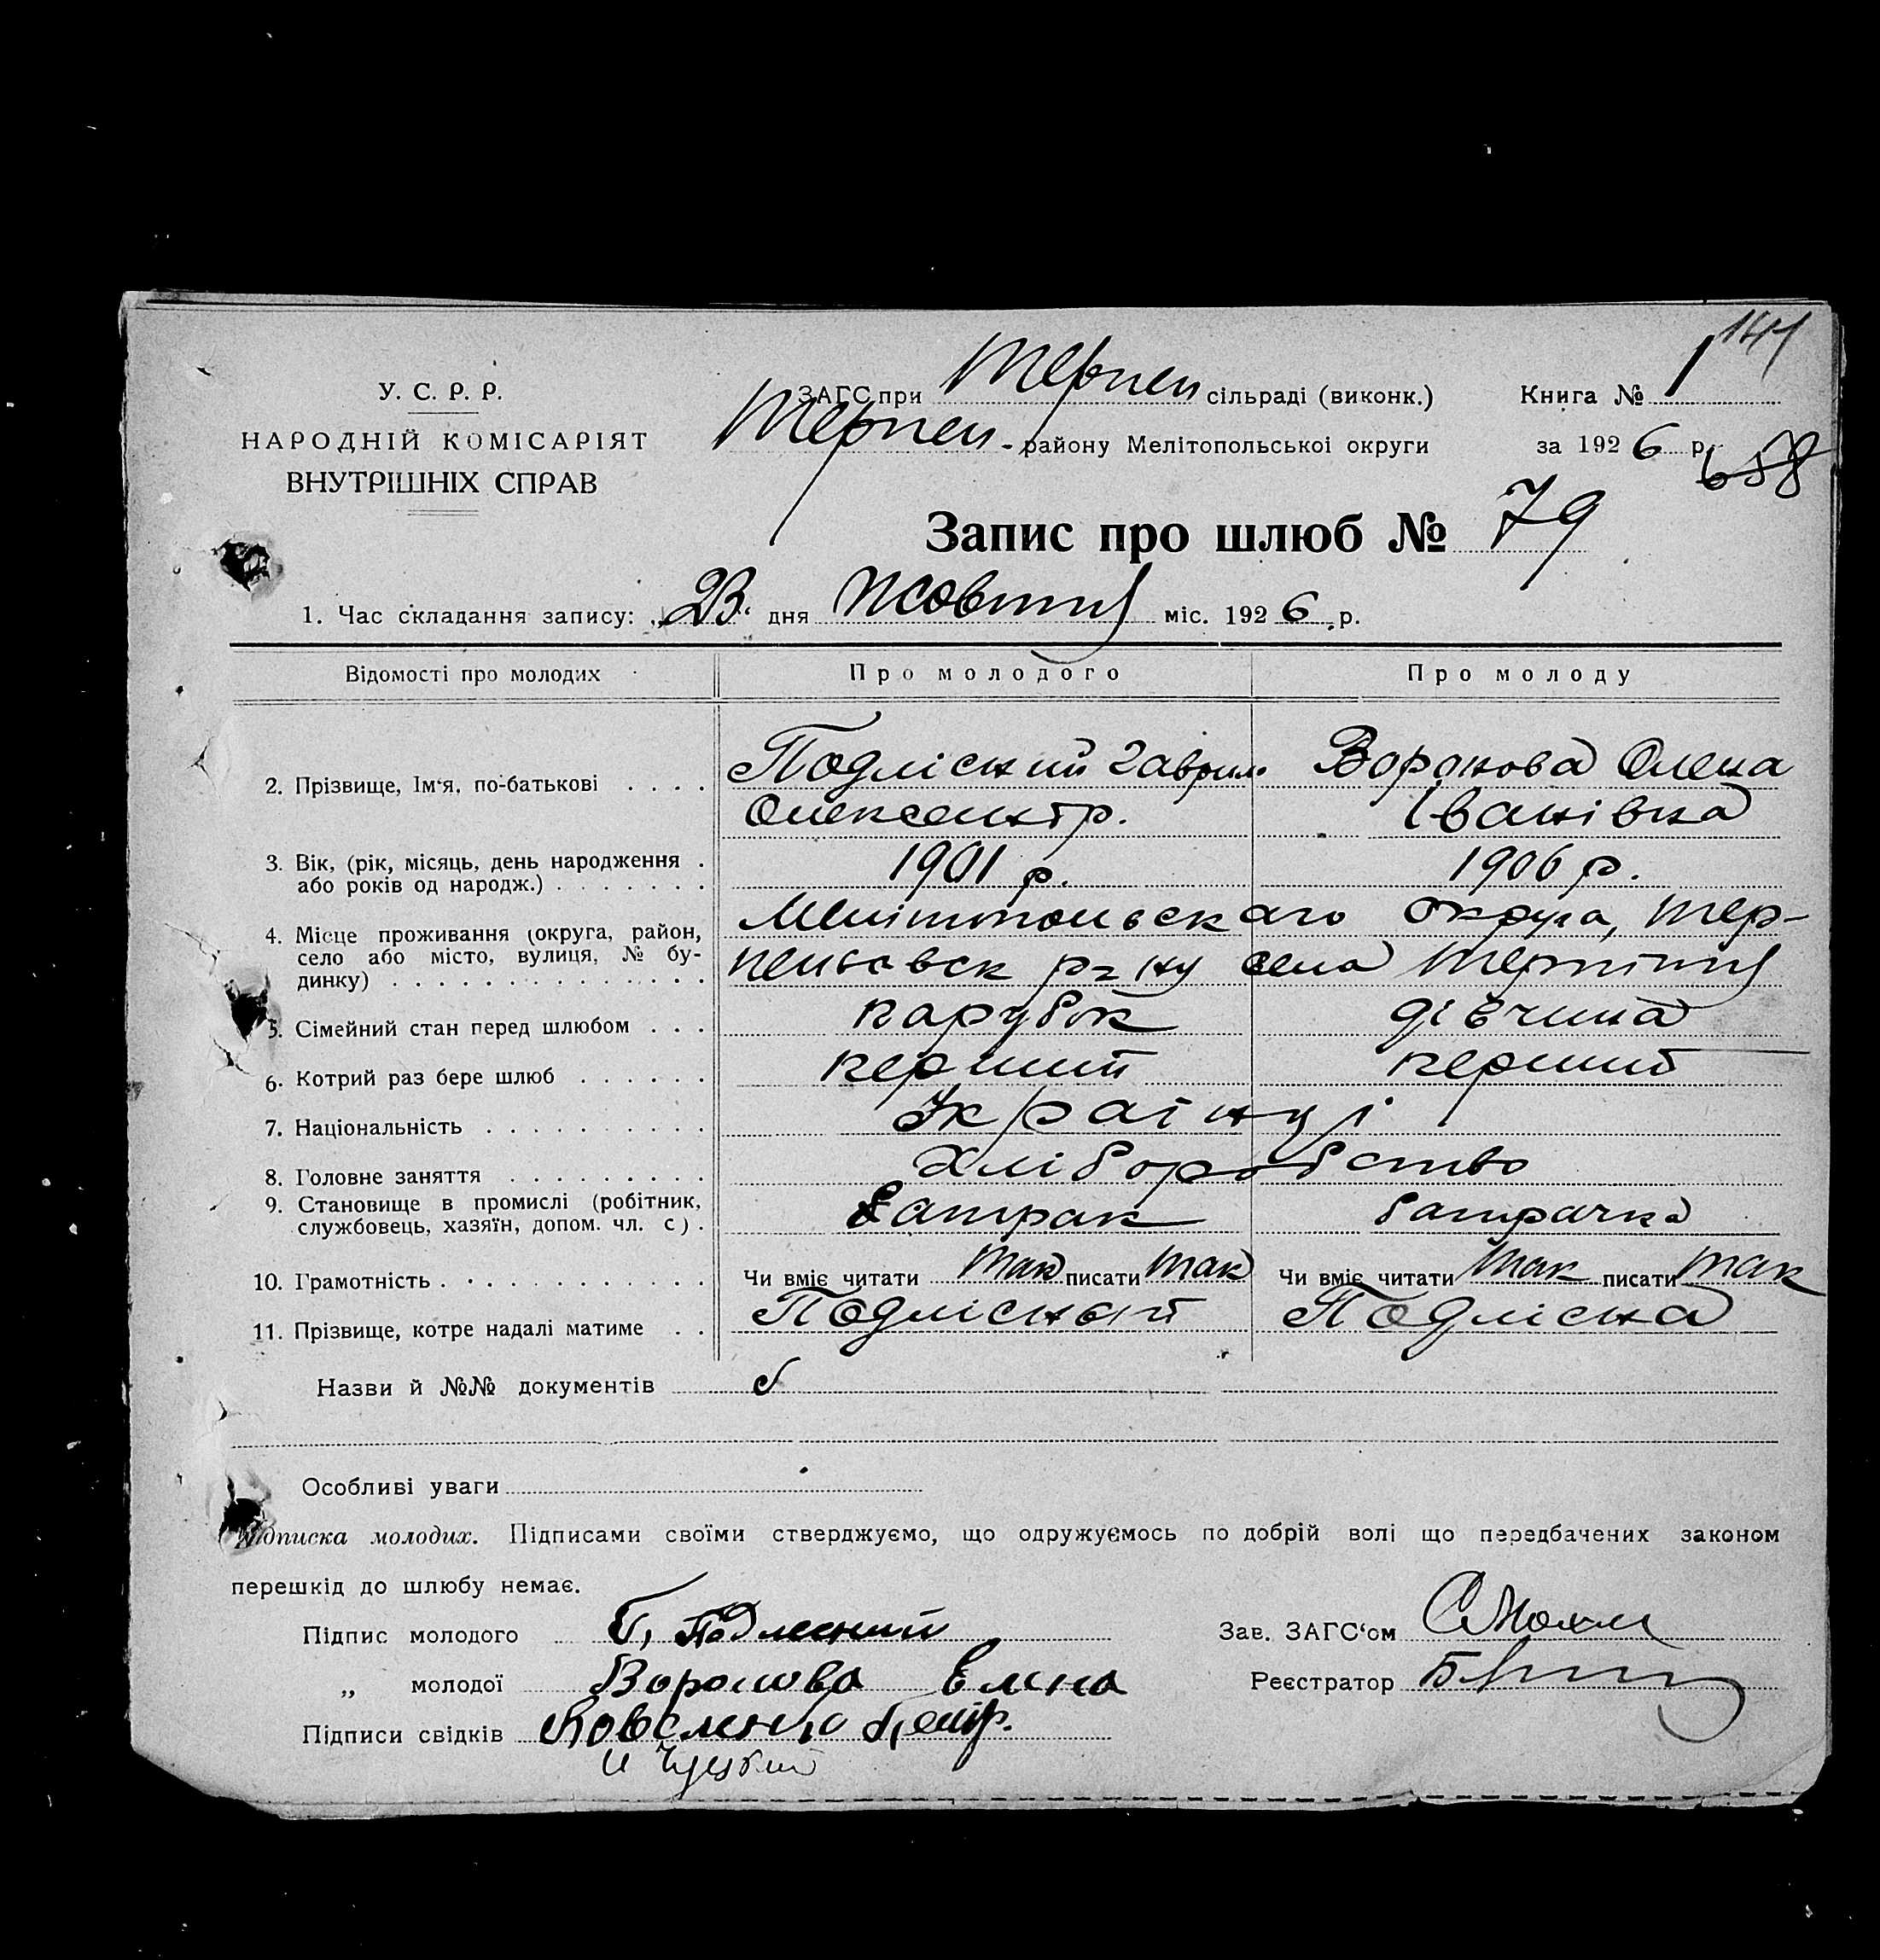 У. С. Р. Р.
НАРОДНІЙ КОМІСАРІЯТ
ВНУТРІШНІХ СПРАВ
ЗАГС при Терпен сільраді (виконк.)
Терпен - району Мелітопольської округи
Книга № 1
за 1926 р.
658
Запис про шлюб № 79
1. Час складання запису: „23“ дня Жовтня міс. 1926 р.
Відомості про молодих Про молодого Про молоду
2. Прізвище, Ім'я, по-батькові Подліский Гаврил Воронова Олена
Олександр. Іванівна
3. Вік, (рік, місяць, день народження 1901 р. 1906 р.
або років од народж.)
4. Місце проживання (округа, район, Мелітопольскаго округа, Тер-
село або місто, вулиця, № бу- пеньевск р-ну села Терпіння
динку)
5. Сімейний стан перед шлюбом парубок дівчина
6. Котрий раз бере шлюб перший перший
7. Національність Українці
8. Головне заняття Хліборобство
9. Становище в промислі (робітник, батрак батрачка
службовець, хазяїн, допом. чл. с)
10. Грамотність Чи вміє читати так писати так Чи вміє читати так писати так
11. Прізвище, котре надалі матиме Подлісний Подлісна
Назви й №№ документів
Особливі уваги
Підписка молодих. Підписами своїми стверджуємо, що одружуємось по добрій волі що передбачених законом
перешкід до шлюбу немає.
Підпис молодого Г. Подлесний
Зав. ЗАГС'ом
„ молодої Воронова Елена
Реєстратор
Підписи свідків Коваленко